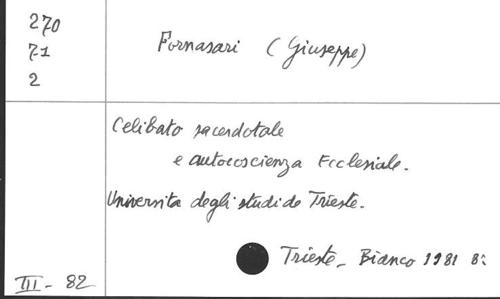 270
71
2
Fornasari (Giuseppe)
Celibato sacerdotale
e autocoscienza Ecclesiale.
Universita degli studi de Trieste.
Trieste_ Bianco 1981 8:
III - 82